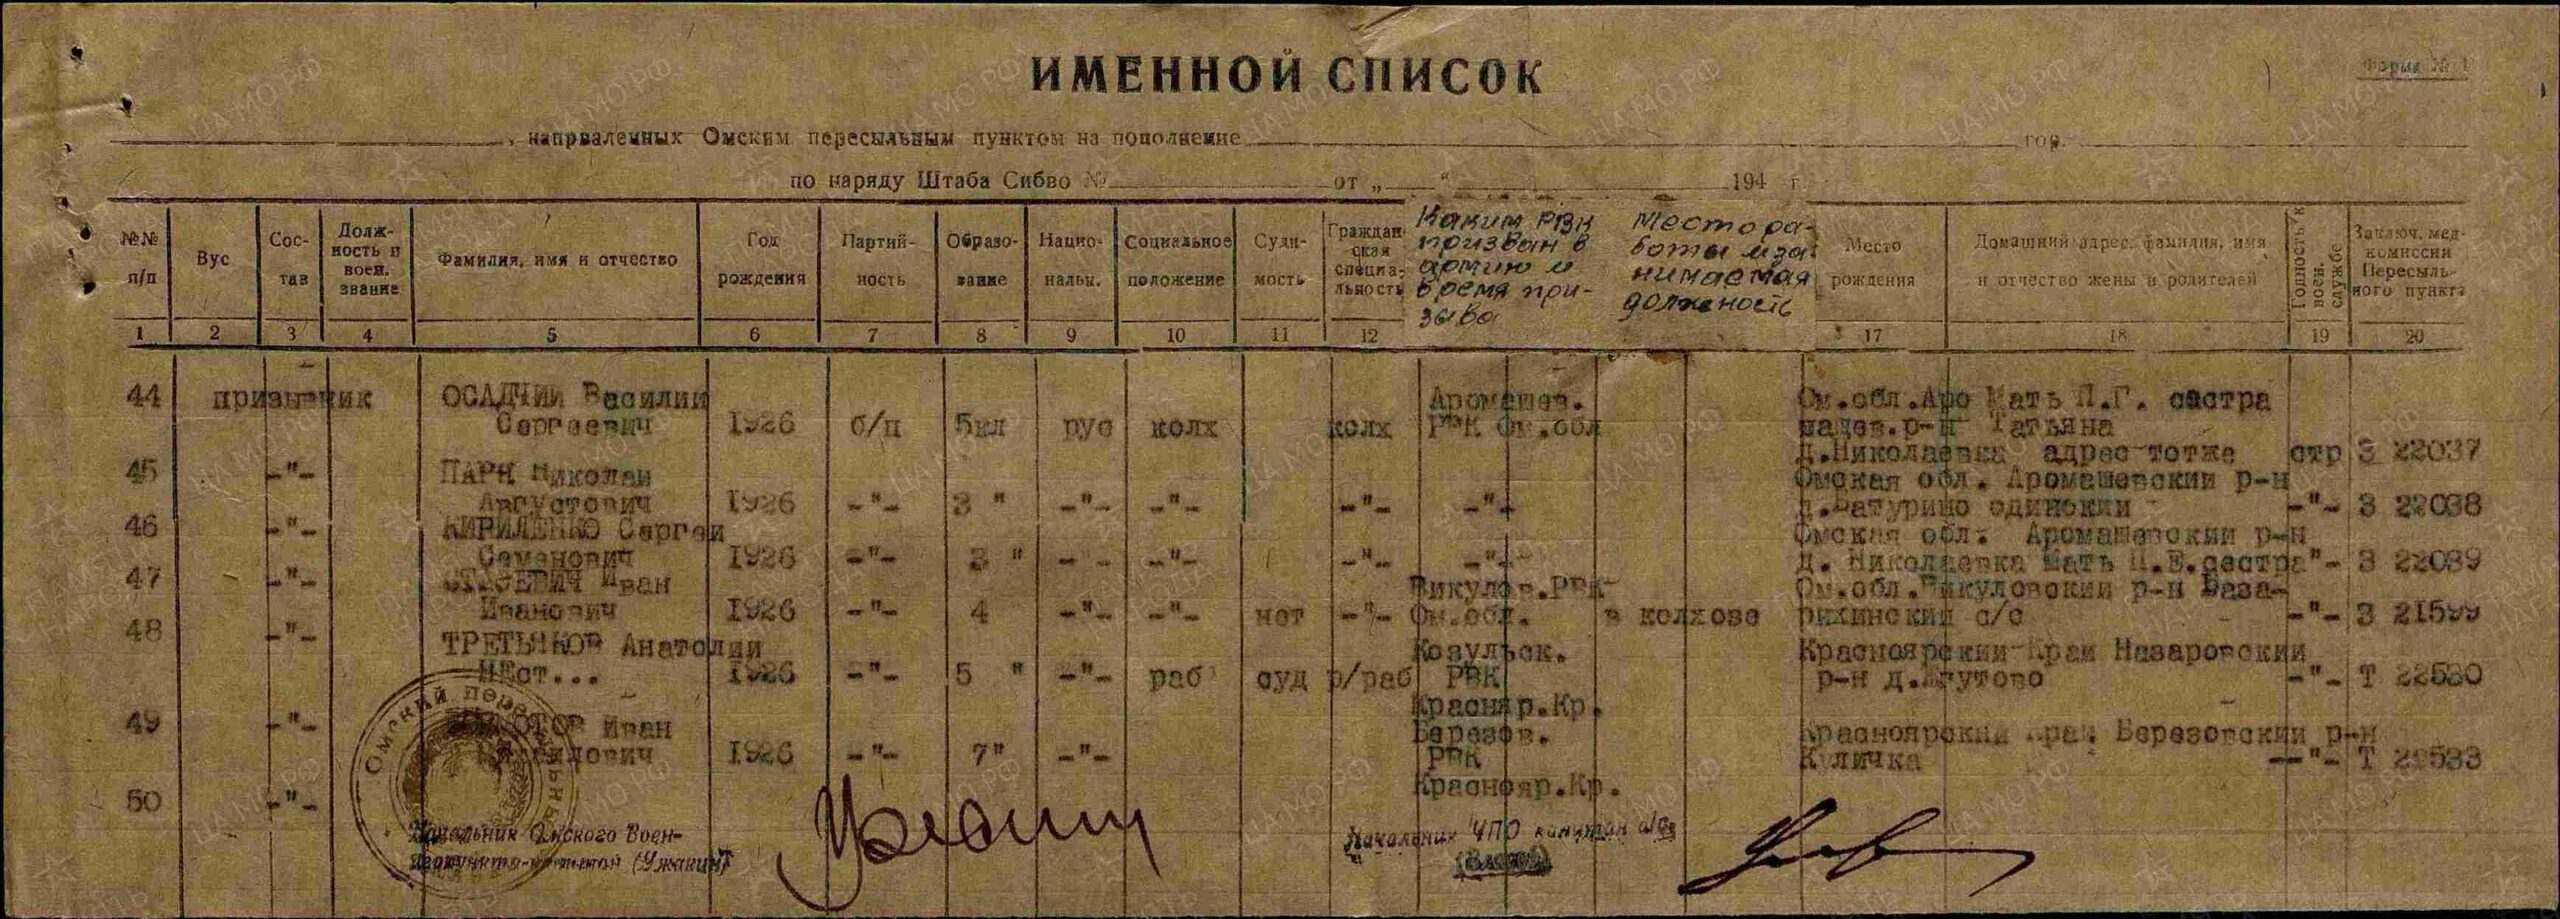 ИМЕННОЙ СПИСОК
Форма № 1
, напрвалеиных Омским пересыльным пунктом на пополнение гор.
по наряду Штаба Сибво № от „ “ 194 г.
№№ п/п
Вус
Сос- тав
Долж- ность и воен. звание
Фамилия, имя и отчество
Год рождения
Партий- ность
Образо- вание
Нацио- нальн.
Социальное положение
Суди- мость
Граждан- ская специа- льность
Каким РВК призван в армию и время при- зыва
Место ра- боты и за- нимаемая должность
Место рождения
Домашний адрес, фамилия, имя и отчество жены и родителей
Годность к воен. службе
Заключ. мед- комиссии Пересыль- ного пункта
1 2 3 4 5 6 7 8 9 10 11 12 17 18 19 20
44 призывник ОСАДЧИЙ Василий Аромашев. Ом.обл.Аро Мать П.Г. састра
Сергеевич 1926 б/п 5кл рус колх колх РВК Ом.обл шадев.р-н Татьяна
д.Николаевка адрес тотже стр З 22037
45 -"- ПАРН Николай Омская обл. Аромашевский р-н
Августович 1926 -"- 3 " -"- -"- -"- -"- д.Батурино одинокий -"- З 22038
46 -"- КИРИЛЕНКО Сергей Омская обл. Аромашевский р-н
Семенович 1926 -"- 3 " -"- -"- -"- -"- д. Николаевка мать П.Е.сестра"- З 22039
47 -"- СТАСЕВИЧ Иван Викулов.РВК Ом.обл.Викуловский р-н База-
Иванович 1926 -"- 4 -"- -"- нет -"- Ом.обл. в колхозе рихинский с/с -"- З 21599
48 -"- ТРЕТЬЯКОВ Анатолий Козульск. Красноярский Край Назаровский
НЕст... 1926 -"- 5 " -"- раб суд р/раб РВК р-н д. -"- Т 22530
Красняр.Кр.
49 -"- Иван Березов. Красноярский край Березовский р-н
1926 -"- 7" -"- РВК Куличка -"- Т 22533
Краснояр.Кр.
50 -"-
Омский пересыльный
Начальник Омского Воен-
(Ужакин)
Начальник ЧПО капитан а/с